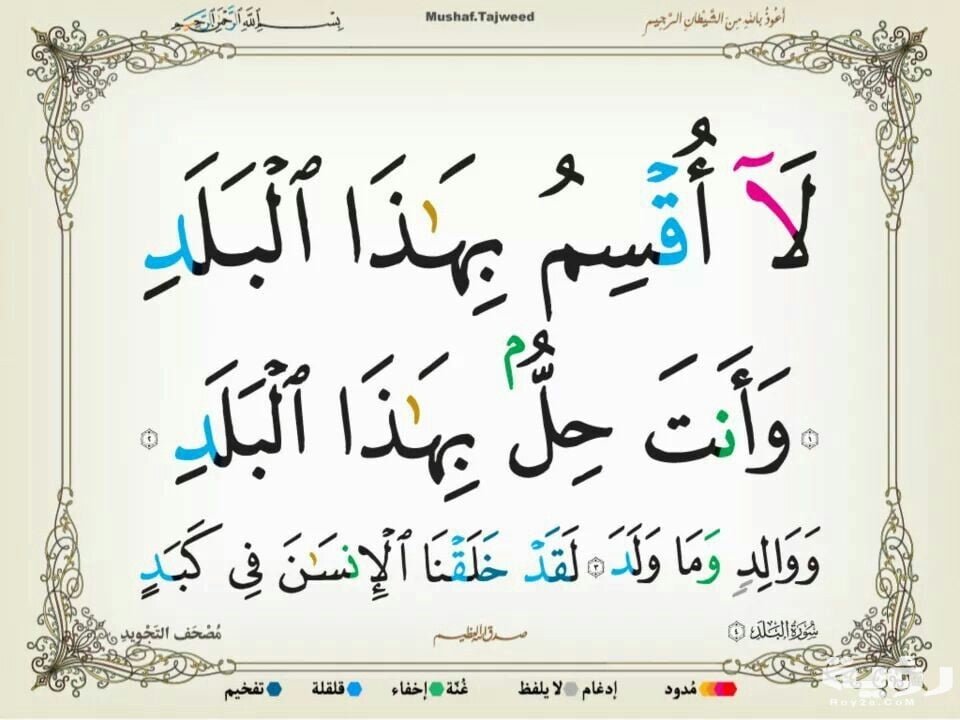 أعوذ بالله من الشيطان الرجيم Mushaf.Tajweed بسم الله الرحمن الرحيم
لَآ أُقْسِمُ بِهَٰذَا ٱلْبَلَدِ
١ وَأَنتَ حِلٌّۢ بِهَٰذَا ٱلْبَلَدِ ٢
وَوَالِدٍ وَمَا وَلَدَ ٣ لَقَدْ خَلَقْنَا ٱلْإِنسَٰنَ فِى كَبَدٍ
سُورَةُ البَلَد ٤ صدق الله العظيم مُصْحَف التَّجْويد
مُدود إدغام لا يلفظ غُنّة إخفاء قلقلة تفخيم
رؤية
Roy2a.CoM